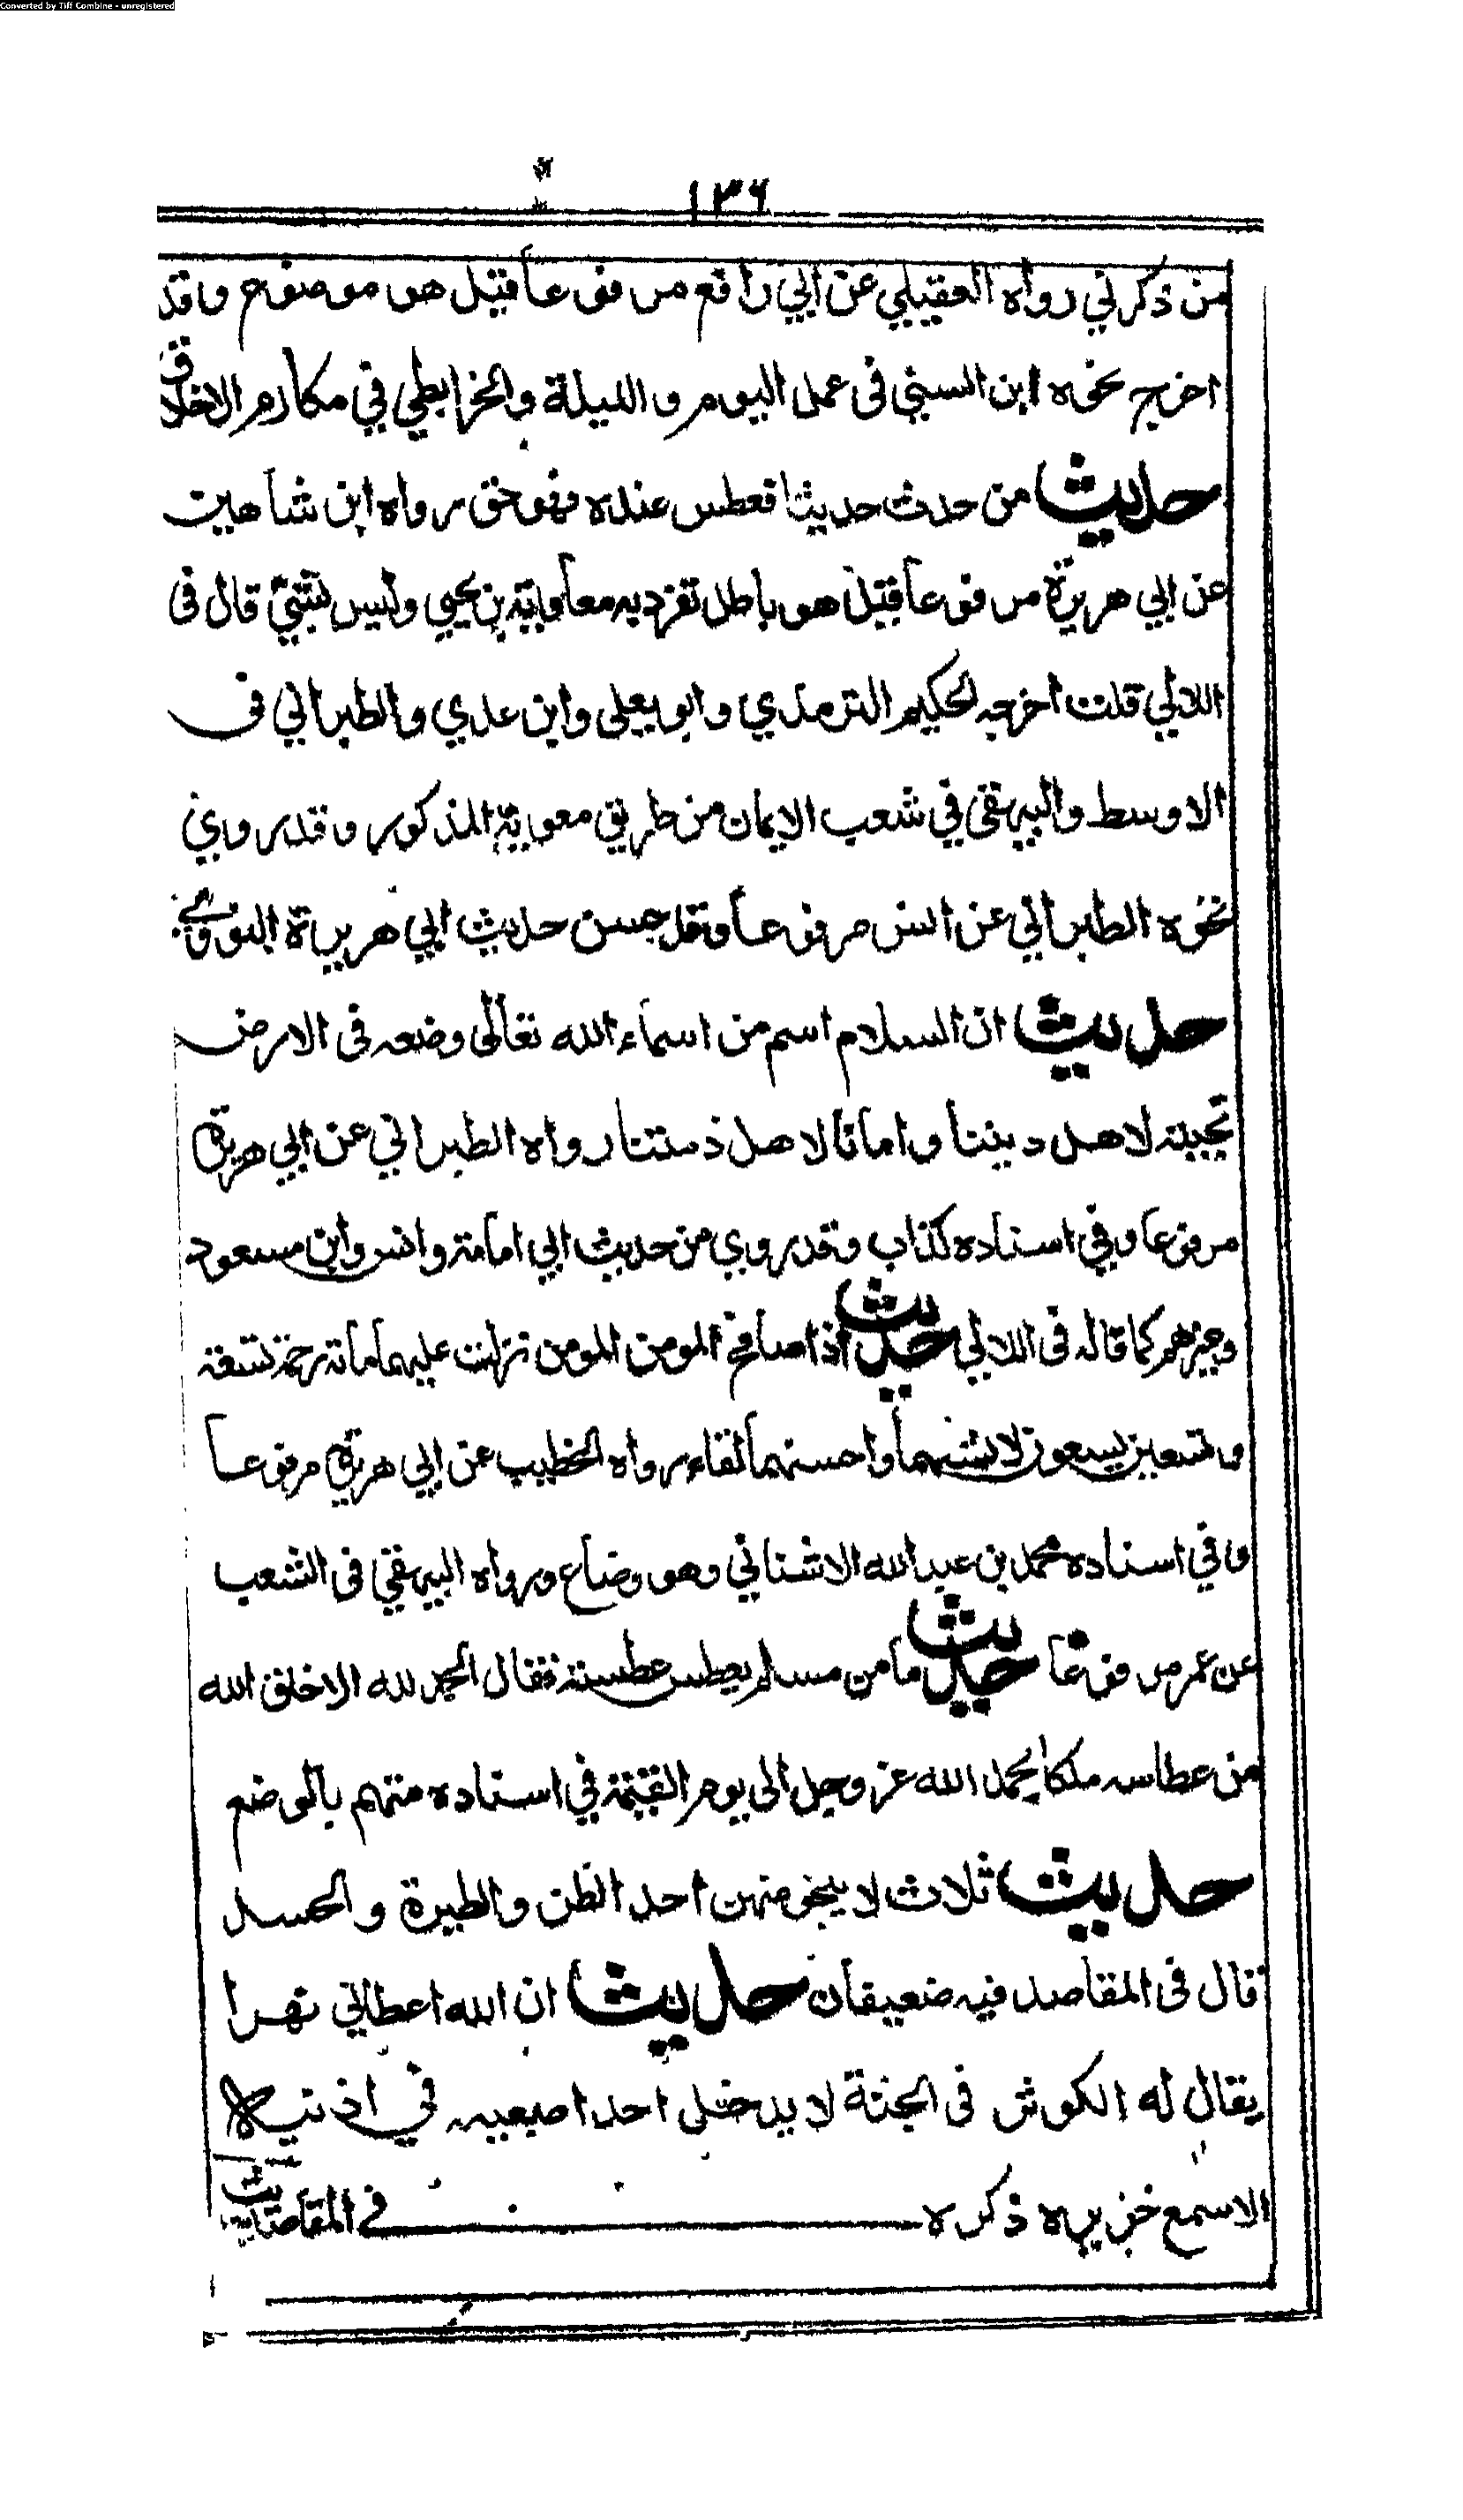 Converted by Tiff Combine - unregistered
١٣٦
من ذكرني رواه العقيلي عن ابي رافع مرفوعا قيل هو موضوع وقد
اخرج نحوه ابن السني فى عمل اليوم والليلة والخرايطي في مكارم الاخلاق
حديث من حدث حديثا فعطس عنده فهو حق رواه ابن شاهين
عن ابي هريرة مرفوعا قيل هو باطل تفرد به معاوية بن يحيى وليس بشئ قال فى
اللالي قلت اخرجه الحكيم الترمذي وابو يعلى وابن عدي والطبراني في
الاوسط والبيهقى في شعب الايمان من طريق معوية المذكور وقد روي
نحوه الطبراني عن انس مرفوعا وقد حسن حديث ابي هريرة النووي
حديث ان السلام اسم من اسماء الله تعالى وضعه فى الارض
تحية لاهل ديننا وامانا لاهل ذمتنا رواه الطبراني عن ابي هريرة
مرفوعا وفي اسناده كذاب وقد روي من حديث ابي امامة وانس وابن مسعود
وغيرهم كما قاله فى اللالي حديث اذا صافح المومن المومن نزلت عليهما ماتة رحمة تسعة
وتسعين يسعون لابشهما واحسنهما لقاء رواه الخطيب عن ابي هريرة مرفوعا
وفي اسناده محمد بن عبد الله الاشناني وهو وضاع ورواه البيهقي فى الشعب
عن عمر مرفوعا حديث ما من مسلم يعطس عطسة فقال الحمد لله الا خلق الله
من عطاسه ملكا يحمد الله عز وجل الى يوم القيمة في اسناده متهم بالوضع
حديث ثلاث لا ينجو منهن احد الظن والطيرة والحسد
قال فى المقاصد فيه ضعيفان حديث ان الله اعطاني نهرا
يقال له الكوثر فى الجنة لا يدخل احد اصبعيه في اذنيه
الا سمع خريره ذكره في المقاصد
حديث